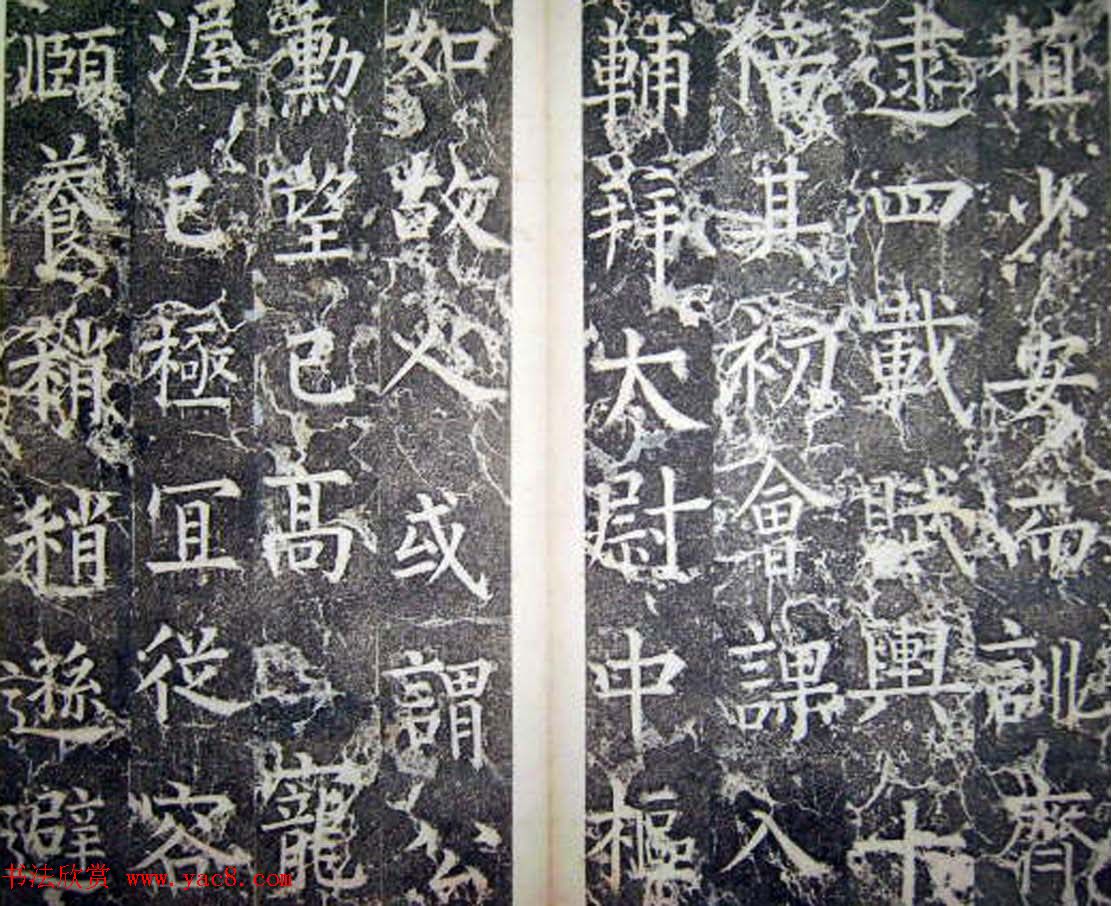 植少安而訓齊
逮四載賦輿什
倍其初會課入
輔拜太尉中樞
如故人或謂公
勳望已高寵
渥已極冝從容
頤養稍稍遜避
书法欣赏 www.yac8.com